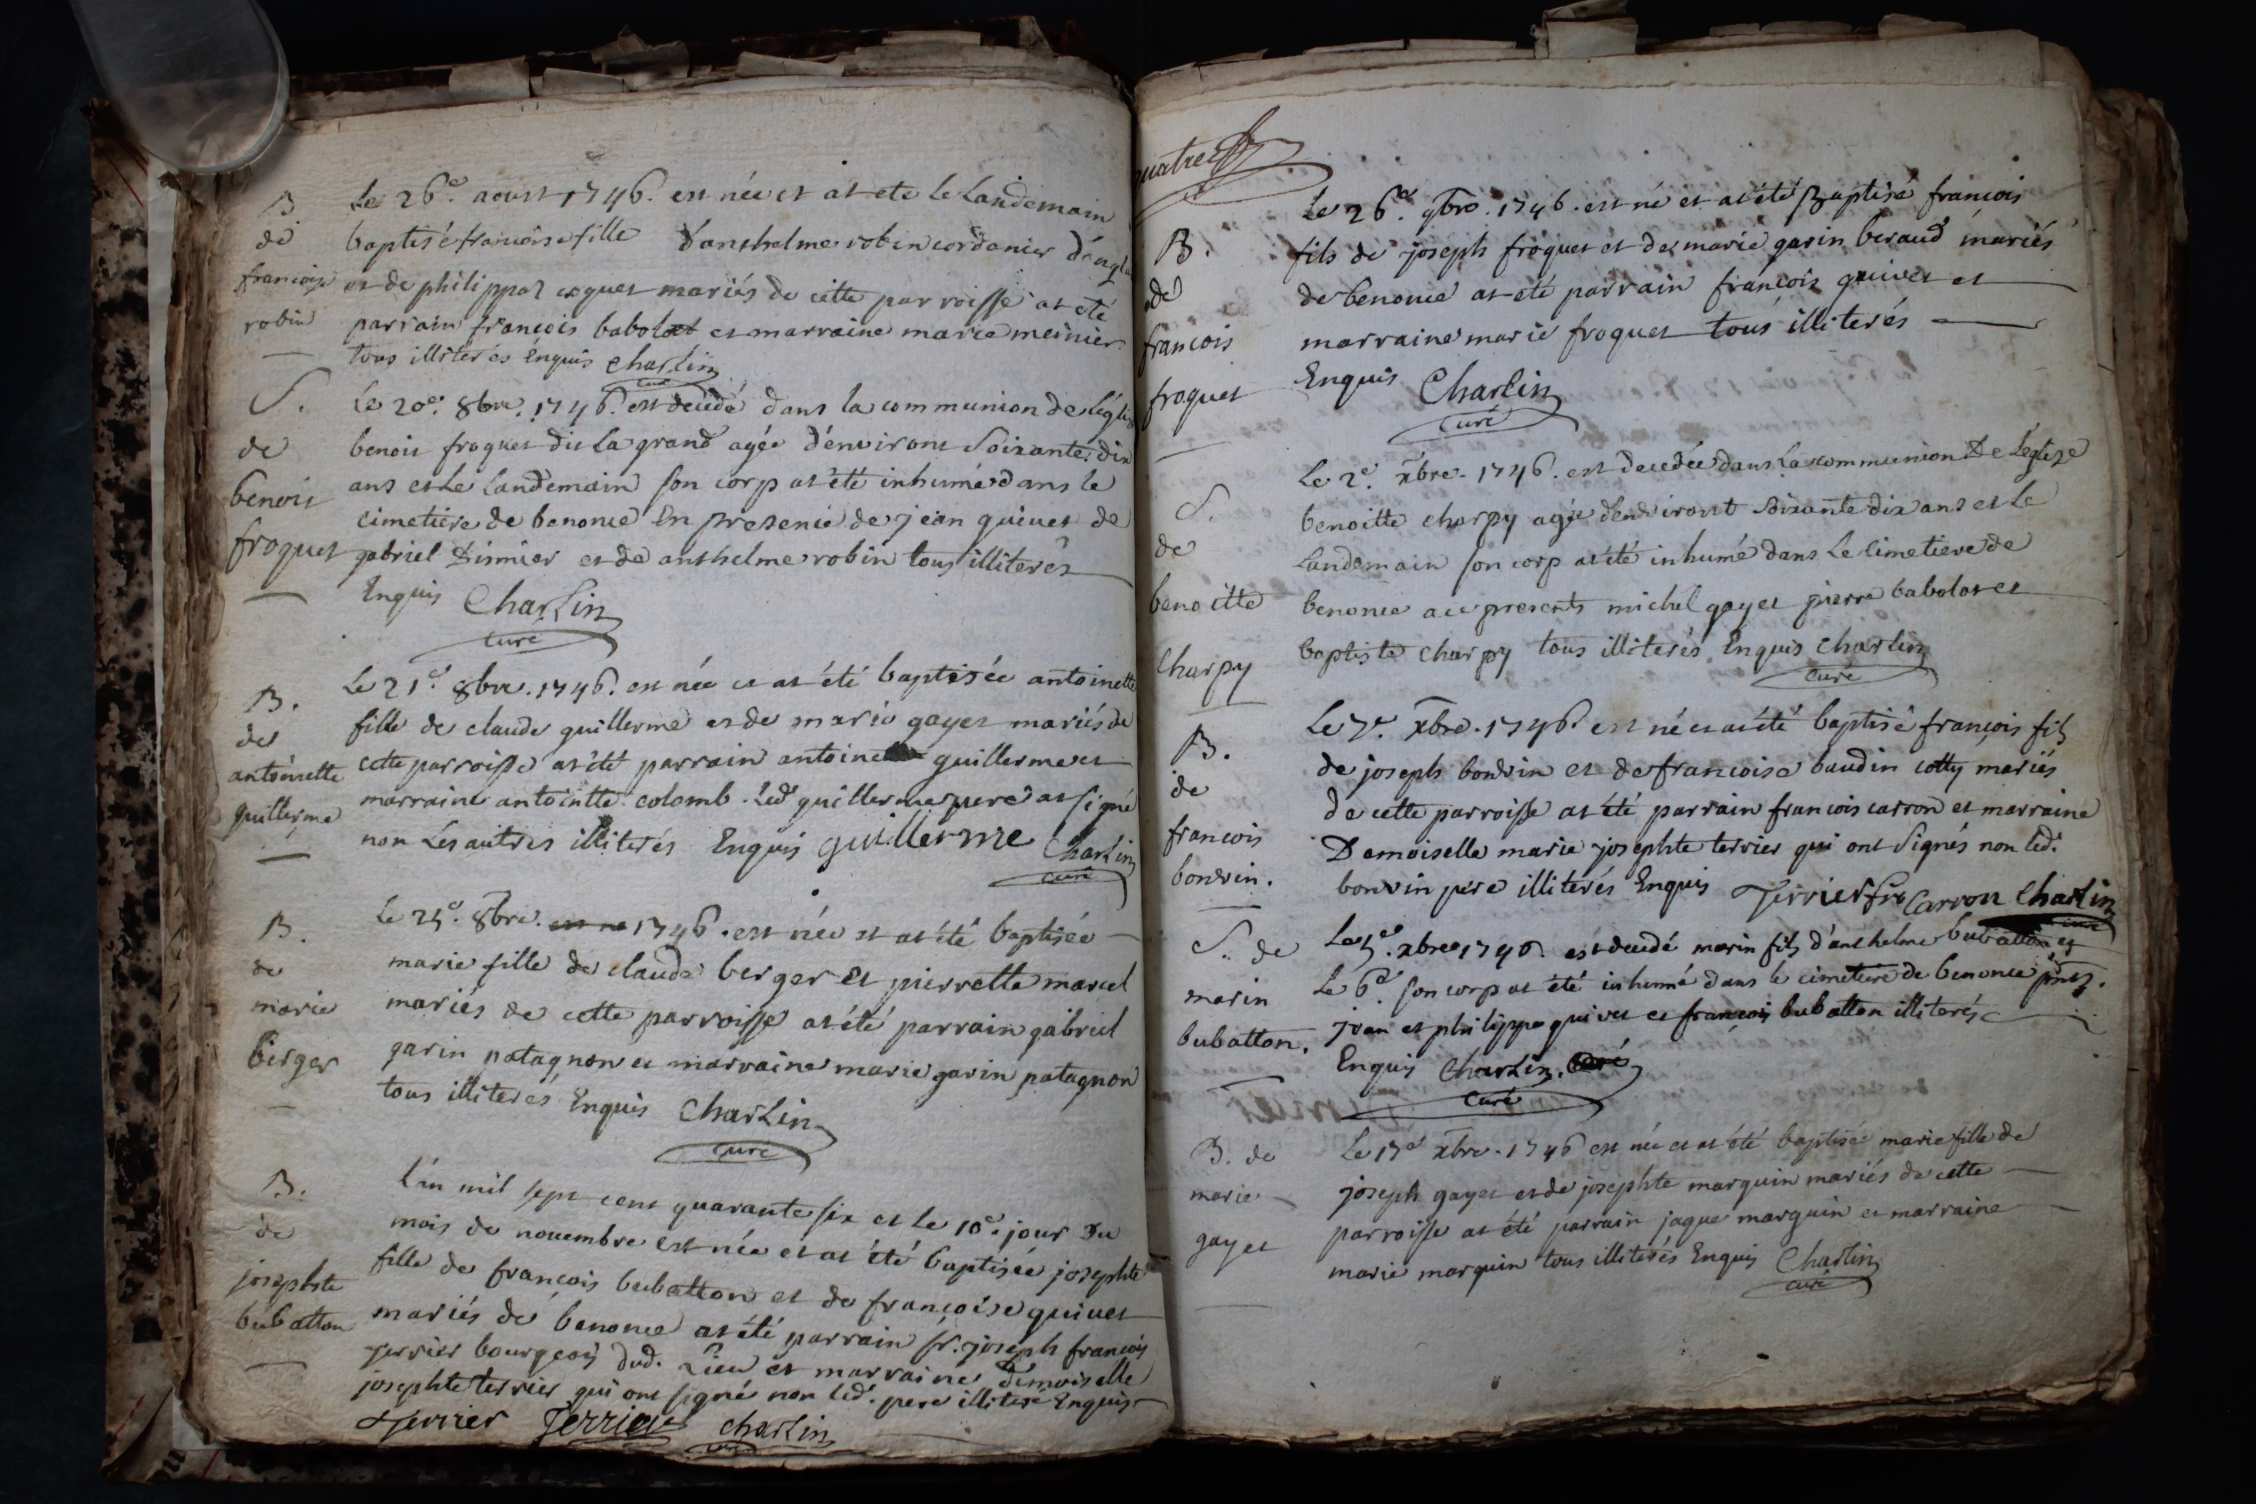 B
de
françoise
robin
Le 26e. aoust 1746. est née et at ete le Landemain
baptisé françoise fille d'anthelme robin cordonier
et de philippaz coquet mariés de cette parroisse at eté
parrain françois babolat et marraine marie meinier
tous illiterés Enquis Charlin
curé
S.
de
benoit
froquet
Le 20e. 8bre. 1746. est decedé dans la communion de l'églis
benoit froquet dit La grand agée d'environt Soixante dix
ans et Le landemain son corp at été inhumé dans le
cimetiere de benonce En presence de jean quivet de
gabriel Dimier et de anthelme robin tous illiterés
Enquis Charlin
curé
B.
de
antoinette
guillerme
Le 21e. 8bre. 1746. est née et at été baptisée antoinette
fille de claude guillerme et de marie gayet mariés de
cette parroisse at été parrain antoine guillerme et
marraine antointte colomb. Led guillerme pere at signé
non Les autres illiterés Enquis guillerme Charlin
curé
B.
de
marie
berger
Le 25e. 8bre. est ne 1746. est née et at été baptisée
marie fille de claude berger et pierrette marcel
mariés de cette parroisse at été parrain gabriel
garin patagnon et marraine marie garin patagnon
tous illiterés Enquis Charlin
curé
B.
de
josephte
bubatton
L'an mil sept cent quarante six et le 10e. jour Du
mois de novembre est née et at été baptisée josephte
fille de françois bubatton et de françoise quivet
mariés de benonce at été parrain sr. joseph françois
Terrier bourgeois dud. Lieu et marraine Demoiselle
josephte terrier qui ont signé non led. pere illiteré Enquis
Terrier Terrier Charlin
curé
quatre
B.
de
françois
froquet
Le 26e. 9bre. 1746. est né et at été Baptisé françois
fils de joseph froquet et de marie garin beraud mariés
de benonce at été parrain françois quivet et
marraine marie froquet tous illiterés
Enquis Charlin
curé
S.
de
benoitte
Charpy
Le 2e. xbre. 1746. est decedée dans La communion De Leglize
benoitte charpy agée d'environt soixante dix ans et Le
Landemain son corp at été inhumé dans Le Cimetiere de
benonce a ce presents michel gayet pierre babolat et
baptiste charpy tous illiterés Enquis Charlin
curé
B.
de
françois
bonvin.
Le 7e. xbre. 1746 est né et at été baptisé françois fils
de joseph bonvin et de françoise baudin cotty mariés
de cette parroisse at été parrain françois carron et marraine
Demoiselle marie josephte terrier qui ont Signés non led.
bonvin pere illiterés Enquis Terrier frc Carron Charlin
curé
S. de
marin
bubatton.
Le 5e. xbre 1746 est decedé marin fils d'anthelme bubatton et
Le 6e. son corp at été inhumé dans le cimetiere de benonce pnts.
jean et philippe quivet et françois bubatton illiterés
Enquis Charlin. curé
curé
B. de
marie
gayet
Le 17e xbre. 1746 est née et at été baptisé marie fille de
joseph gayet et de josephte marguin mariés de cette
parroisse at été parrain jaque marguin et marraine
marie marguin tous illiterés Enquis Charlin
curé